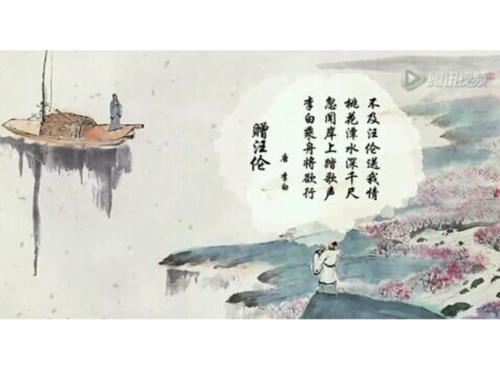 赠汪伦
唐 李白
李白乘舟将欲行
忽闻岸上踏歌声
桃花潭水深千尺
不及汪伦送我情
腾讯视频